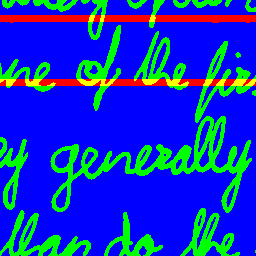 one of the firs
ey generally
than do the